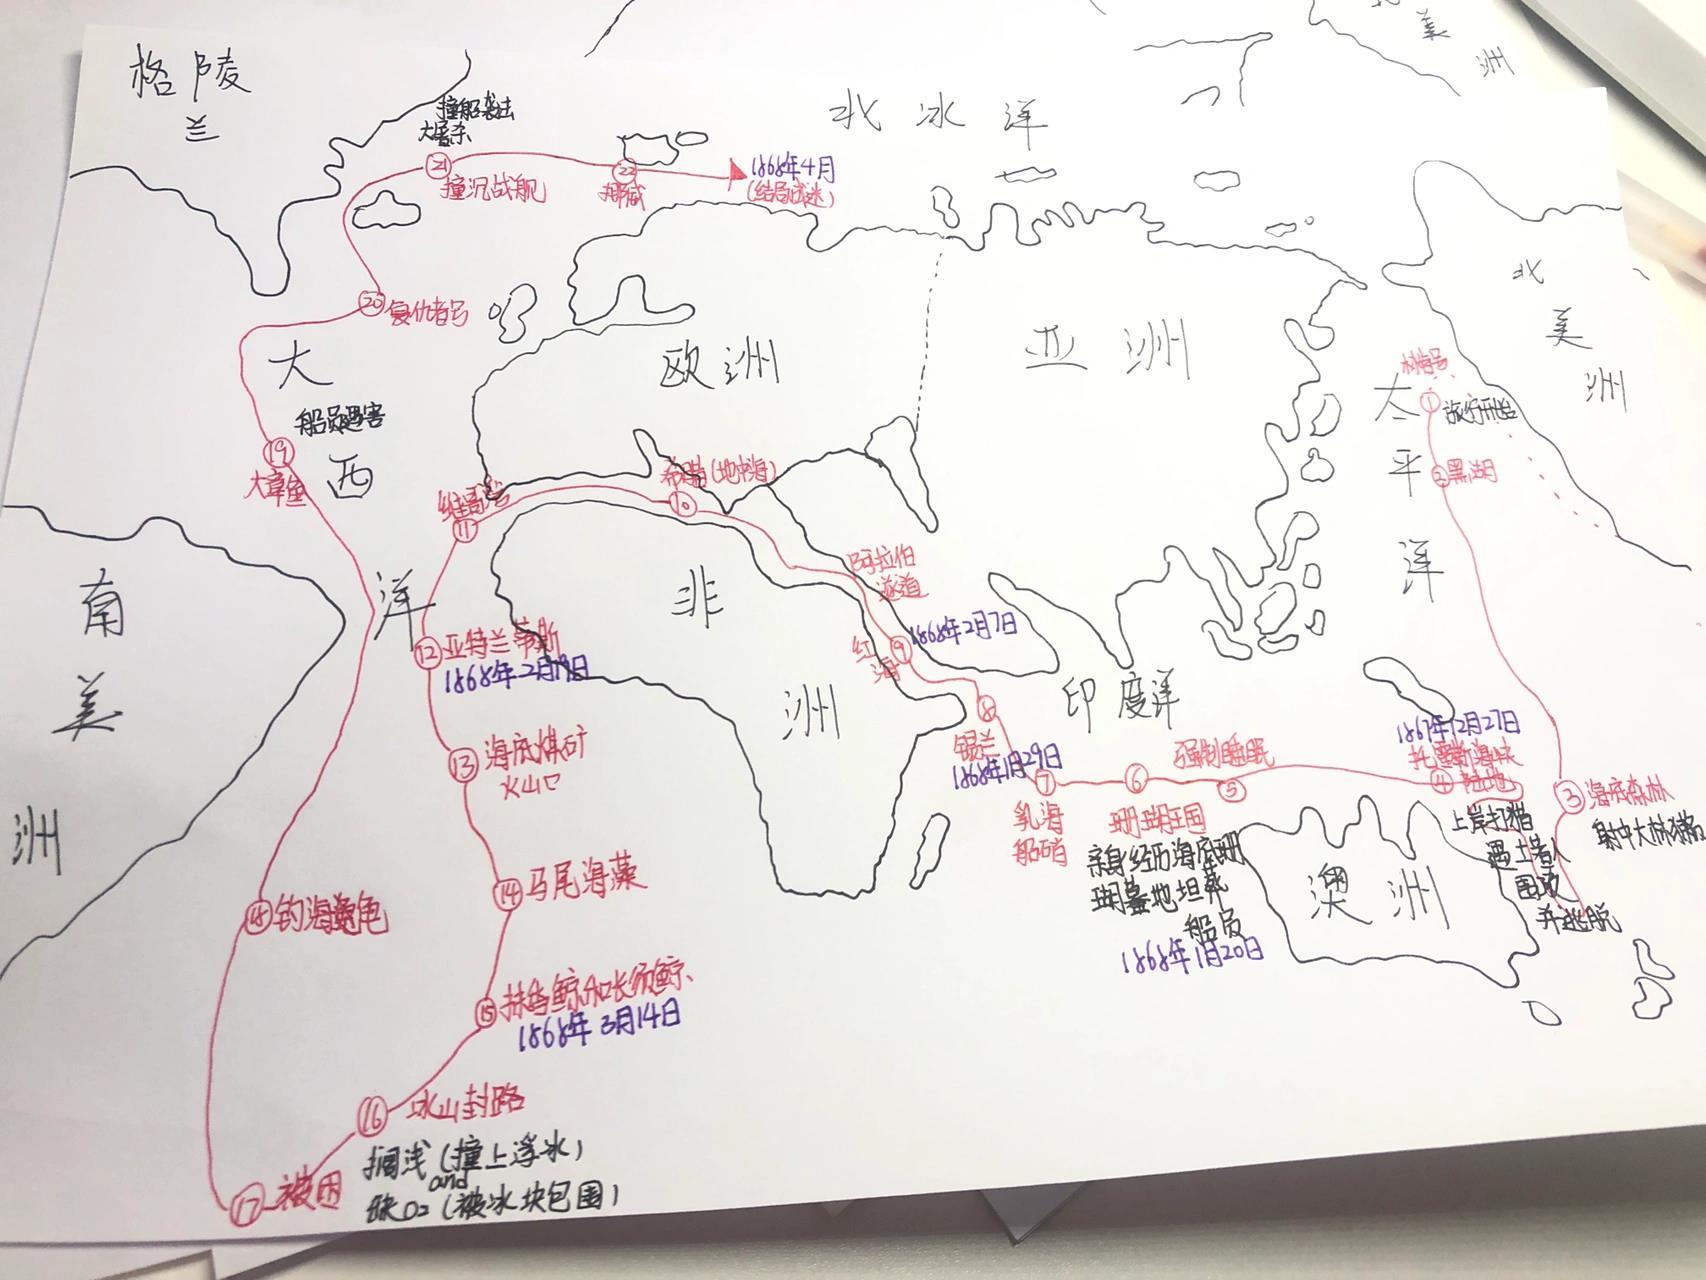 格陵
兰
撞船袭击
大屠杀
㉑
撞沉战舰
㉒
挪威
1868年4月
(结局成迷)
北冰洋
美
洲
北
美
洲
⑳
复仇者号
大
西
洋
船员遇害
⑲
大章鱼
欧洲
亚洲
太
平
洋
林肯号
①
旅行开始
②
黑潮
维哥湾
⑪
希腊(地中海)
⑩
阿拉伯
遂道
1868年2月7日
⑨
红
海
南
美
洲
非
洲
⑫
亚特兰蒂斯
1868年2月19日
⑬
海底煤矿
火山口
⑧
锡兰
1868年1月29日
印度洋
⑦
乳海
船硝
⑥
珊瑚王国
强制睡眠
⑤
亲身经历海底珊
瑚墓地埋葬
船员
1868年1月20日
1867年12月27日
托雷斯海峡
④
陆地
上岸打猎
遇土著人
围攻
并逃脱
③
海底森林
澳洲
⑭
马尾海藻
⑱
钓海龟
⑮
抹香鲸和长须鲸
1868年3月14日
⑯
冰山封路
搁浅(撞上浮冰)
and
缺O2(被冰块包围)
⑰
被困